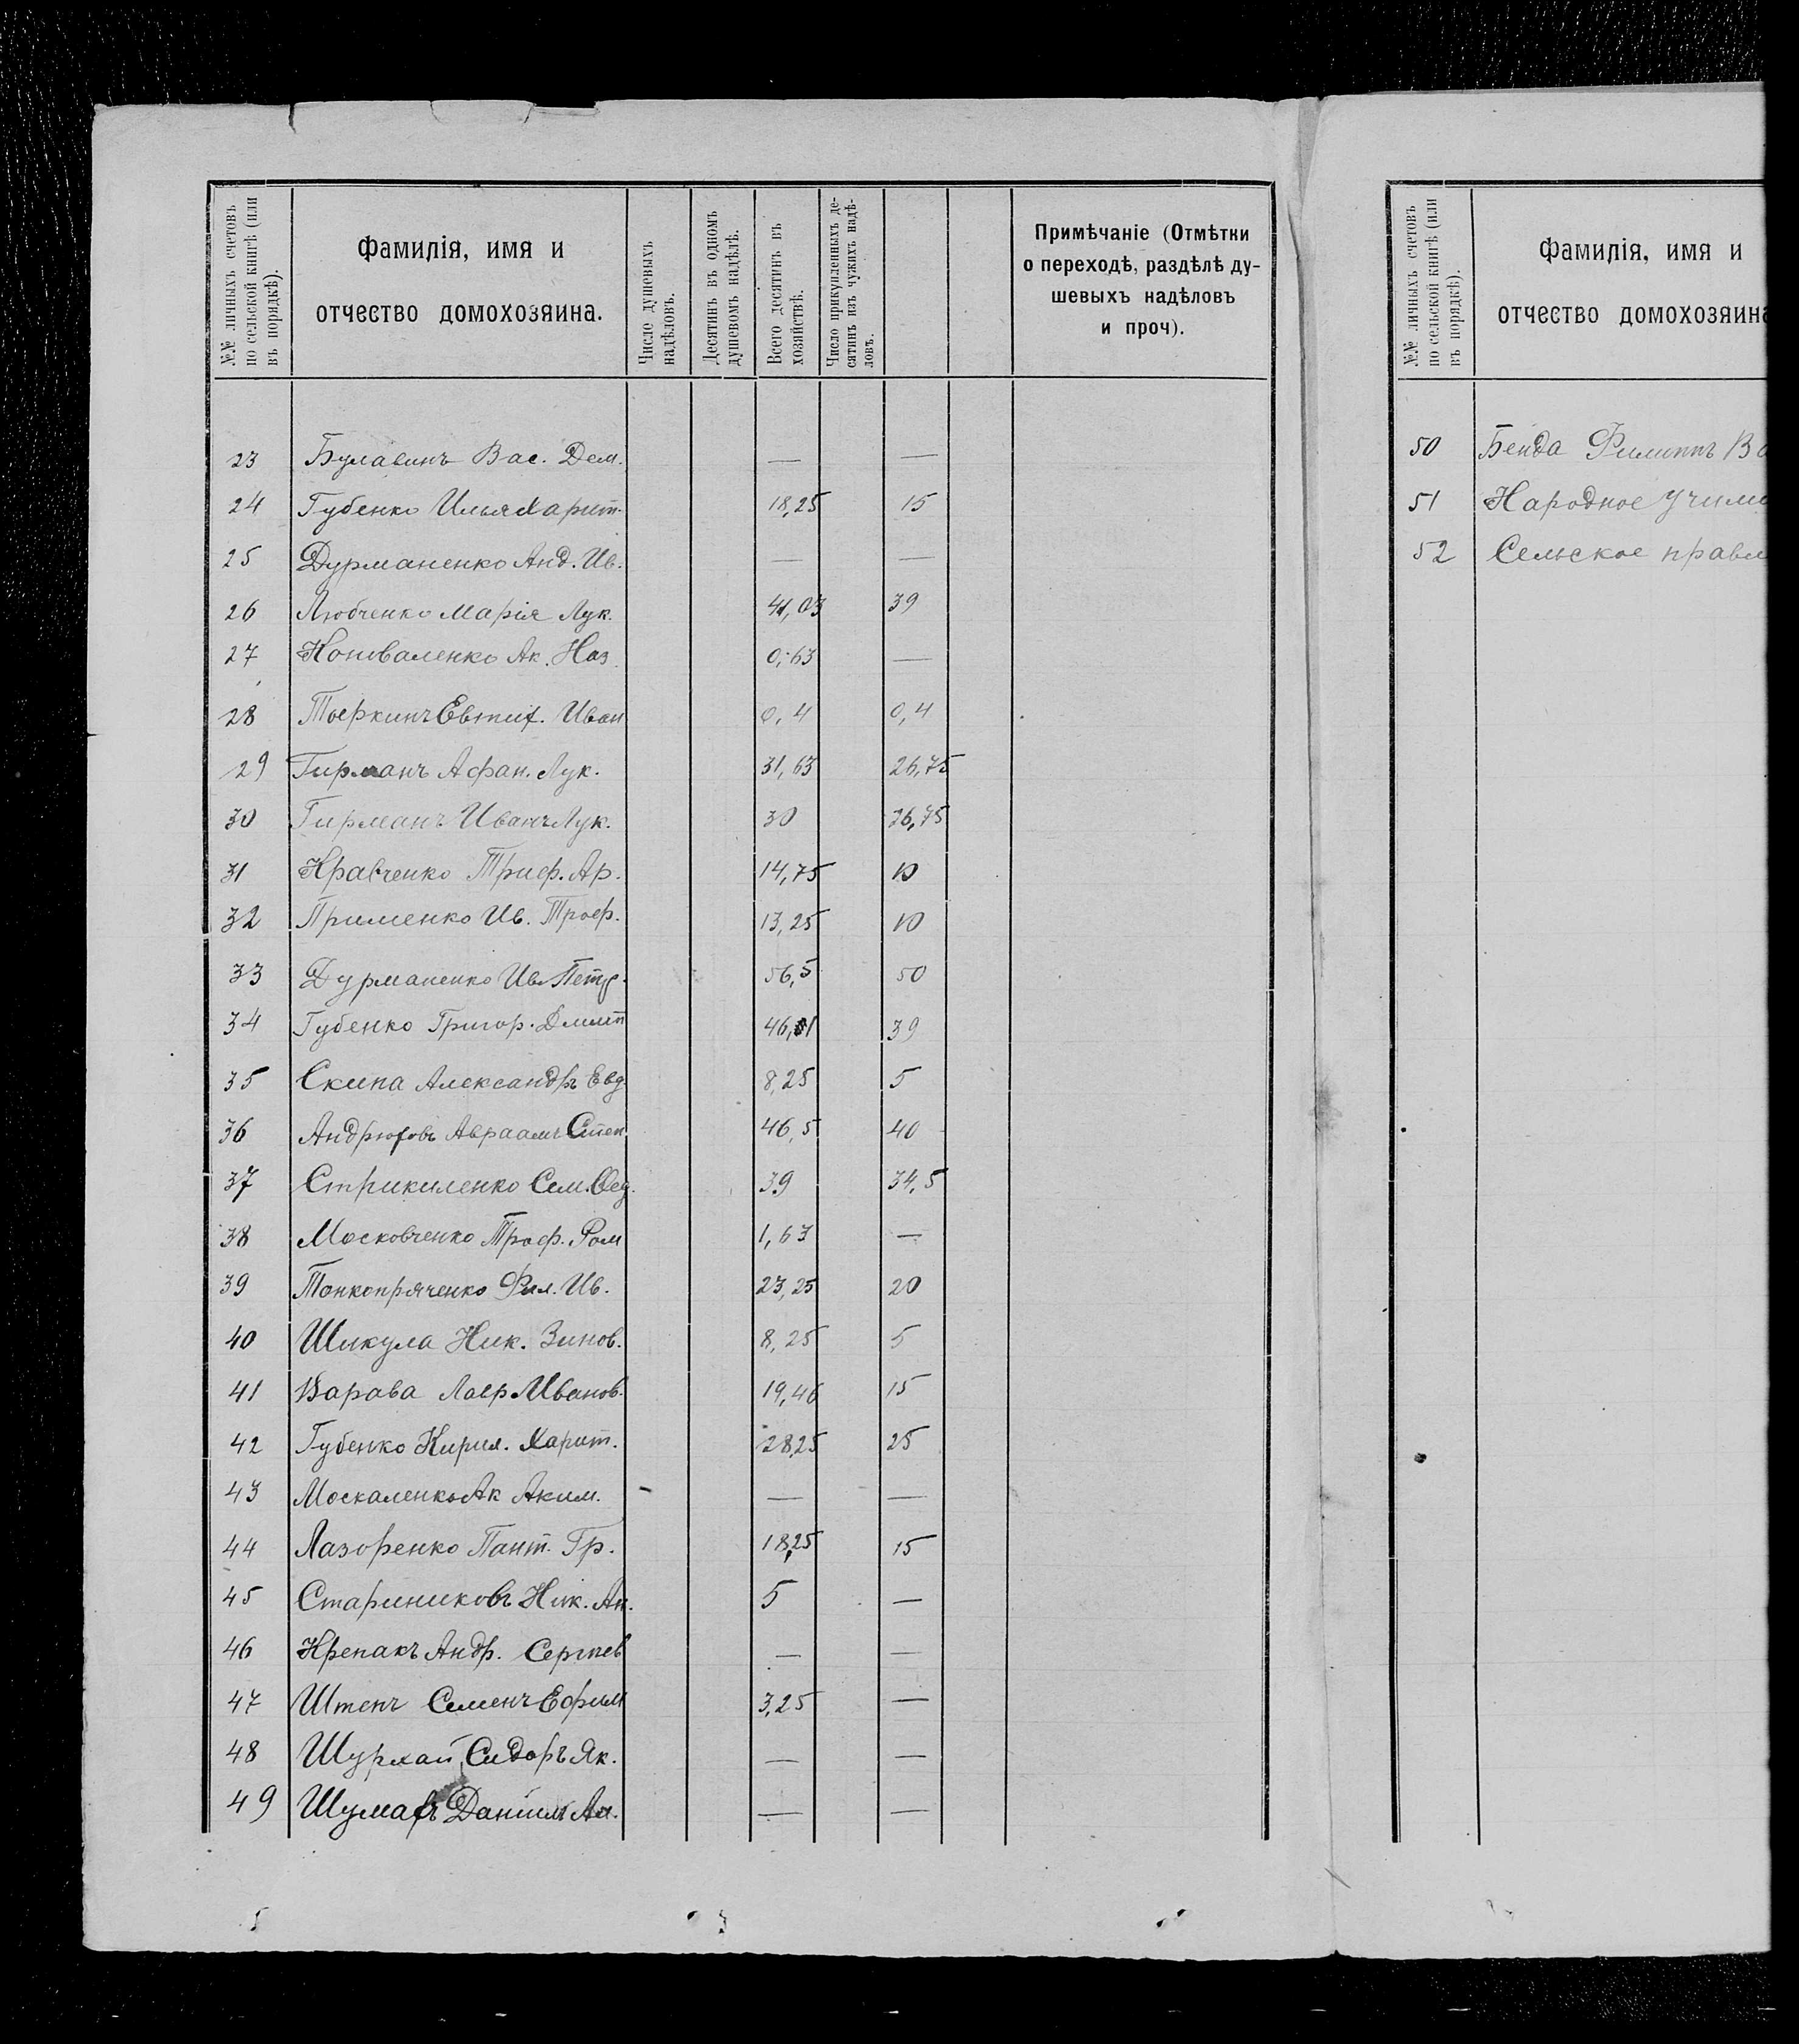 №№ личныхъ счетовъ по сельской книгѣ (или въ порядкѣ).
Фамилія, имя и отчество домохозяина.
Число душевыхъ надѣловъ.
Десятинъ въ одномъ душевомъ надѣлѣ.
Всего десятинъ въ хозяйствѣ.
Число прикупленныхъ десятинъ изъ чужихъ надѣловъ.
Примѣчаніе (Отмѣтки о переходѣ, раздѣлѣ душевыхъ надѣловъ и проч).
23 Булавинъ Вас. Дем. — —
24 Губенко Илья Харит. 18,25 15
25 Дурманенко Анд. Ив. — —
26 Любченко Марія Лук. 41,03 39
27 Коноваленко Ак. Наз. 0,63 —
28 Иван 0,4 0,4
29 Гирманъ Афан. Лук. 31,63 26,75
30 Гирманъ Иванъ Лук. 30 26,75
31 Кравченко Триф. Ар. 14,75 10
32 Применко Ив. Троф. 13,25 10
33 Дурманенко Ив. Петр. 56,5 50
34 Губенко Григор. Дмит 46,01 39
35 Скипа Александръ Евд. 8,25 5
36 Андрюховъ Авраамъ Степ. 46,5 40
37 Стрикиленко Сем. Фед. 39 34,5
38 Московченко Троф. Ром 1,63 —
39 Тонкопряченко Фил. Ив. 23,25 20
40 Шикула Ник. Зинов. 8,25 5
41 Варава Лавр Иванов. 19,46 15
42 Губенко Кирил. Харит. 28,25 25
43 Москаленко Ак Аким. — —
44 Лазоренко Пант. Гр. 18,25 15
45 Стариниковъ Ник. Ан. 5 —
46 Крепакъ Андр. Сергѣев — —
47 Штепъ Семенъ Ефим 3,25 —
48 Шурхай Сидоръ Як. — —
49 Даніилъ — —
№№ личныхъ счетовъ по сельской книгѣ (или въ порядкѣ).
Фамилія, имя и
отчество домохозяина
50 Бенда Филиппъ Ва
51 Народное Учили
52 Сельское правл